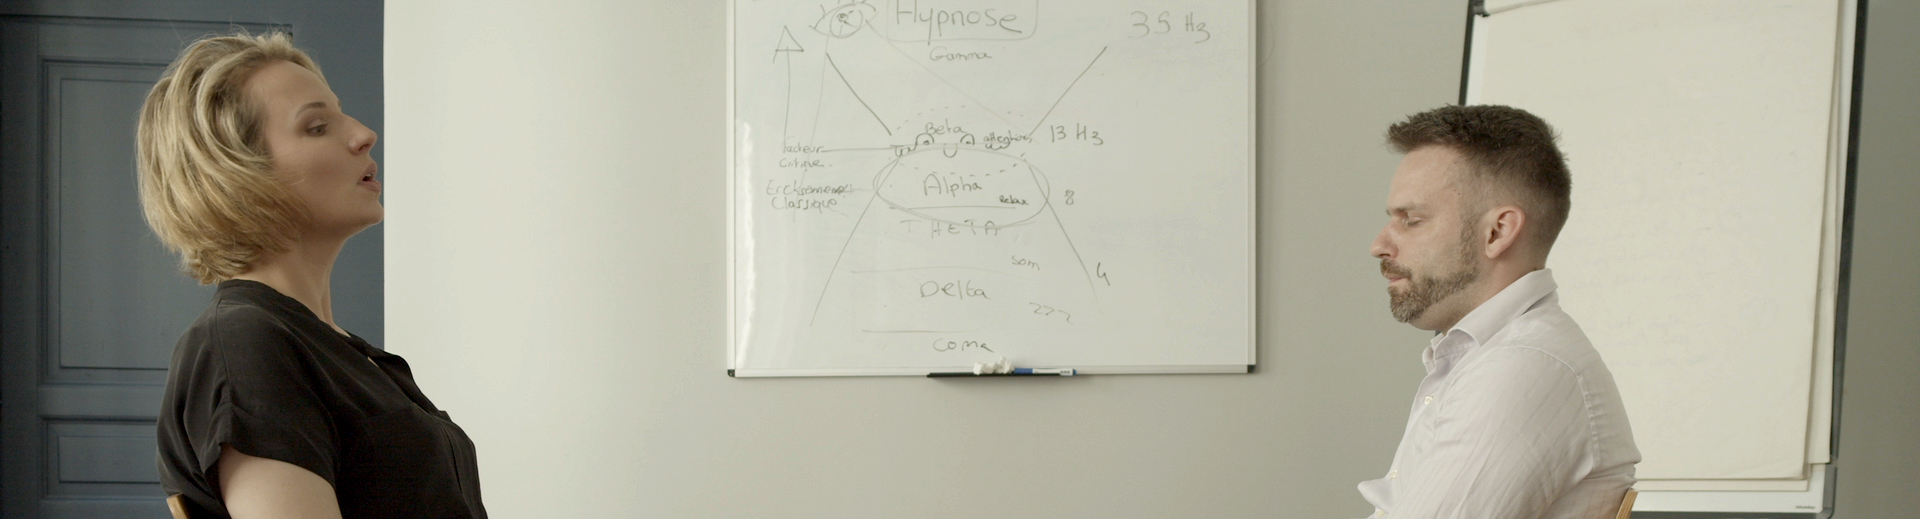 Hypnose
35 Hz
Gamma
Beta
13 Hz
Facteur
Critique
Alpha
Relax
8
Classique
THETA
Som
4
Delta
Coma